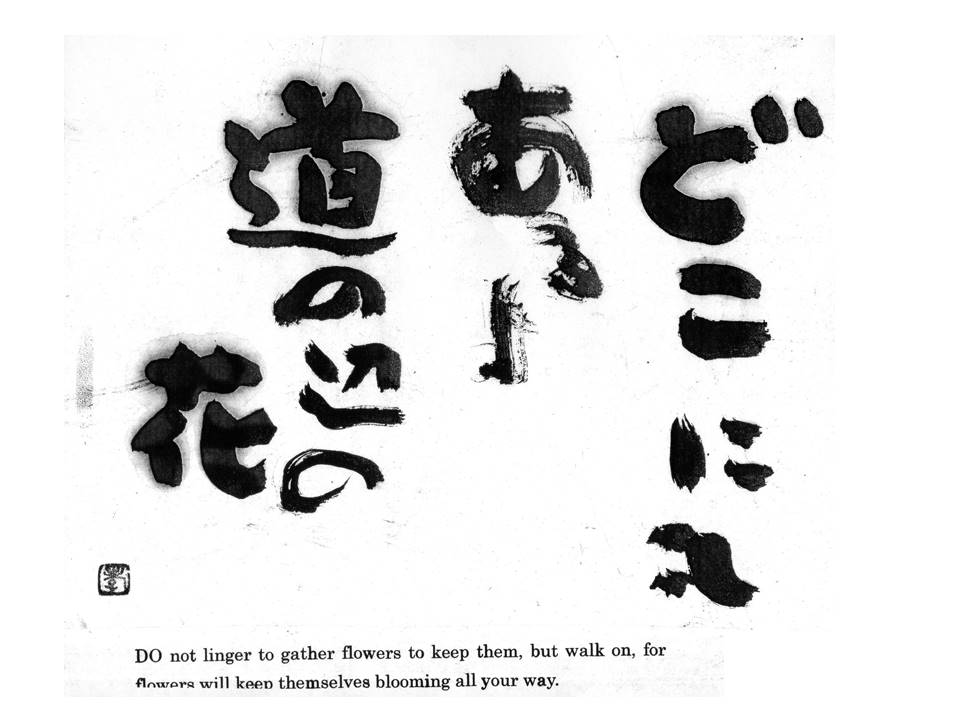 どこに
ある
道の辺の
花
DO not linger to gather flowers to keep them, but walk on, for
flowers will keep themselves blooming all your way.